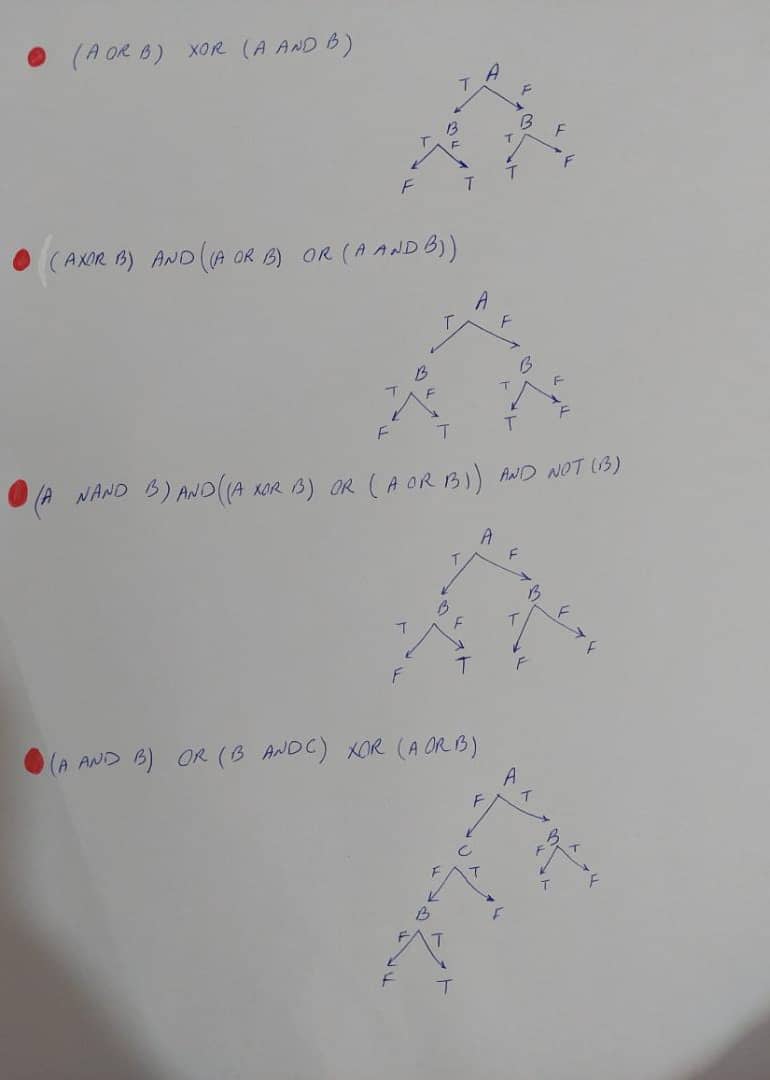 (A OR B) XOR (A AND B)
A
T F
B B
T F T F
F T T F
(A XOR B) AND ((A OR B) OR (A AND B))
A
T F
B B
T F T F
F T T F
(A NAND B) AND ((A XOR B) OR (A OR B)) AND NOT (B)
A
T F
B B
T F T F
F T F F
(A AND B) OR (B AND C) XOR (A OR B)
A
F T
C B
F T F T
B F T F
F T
F T